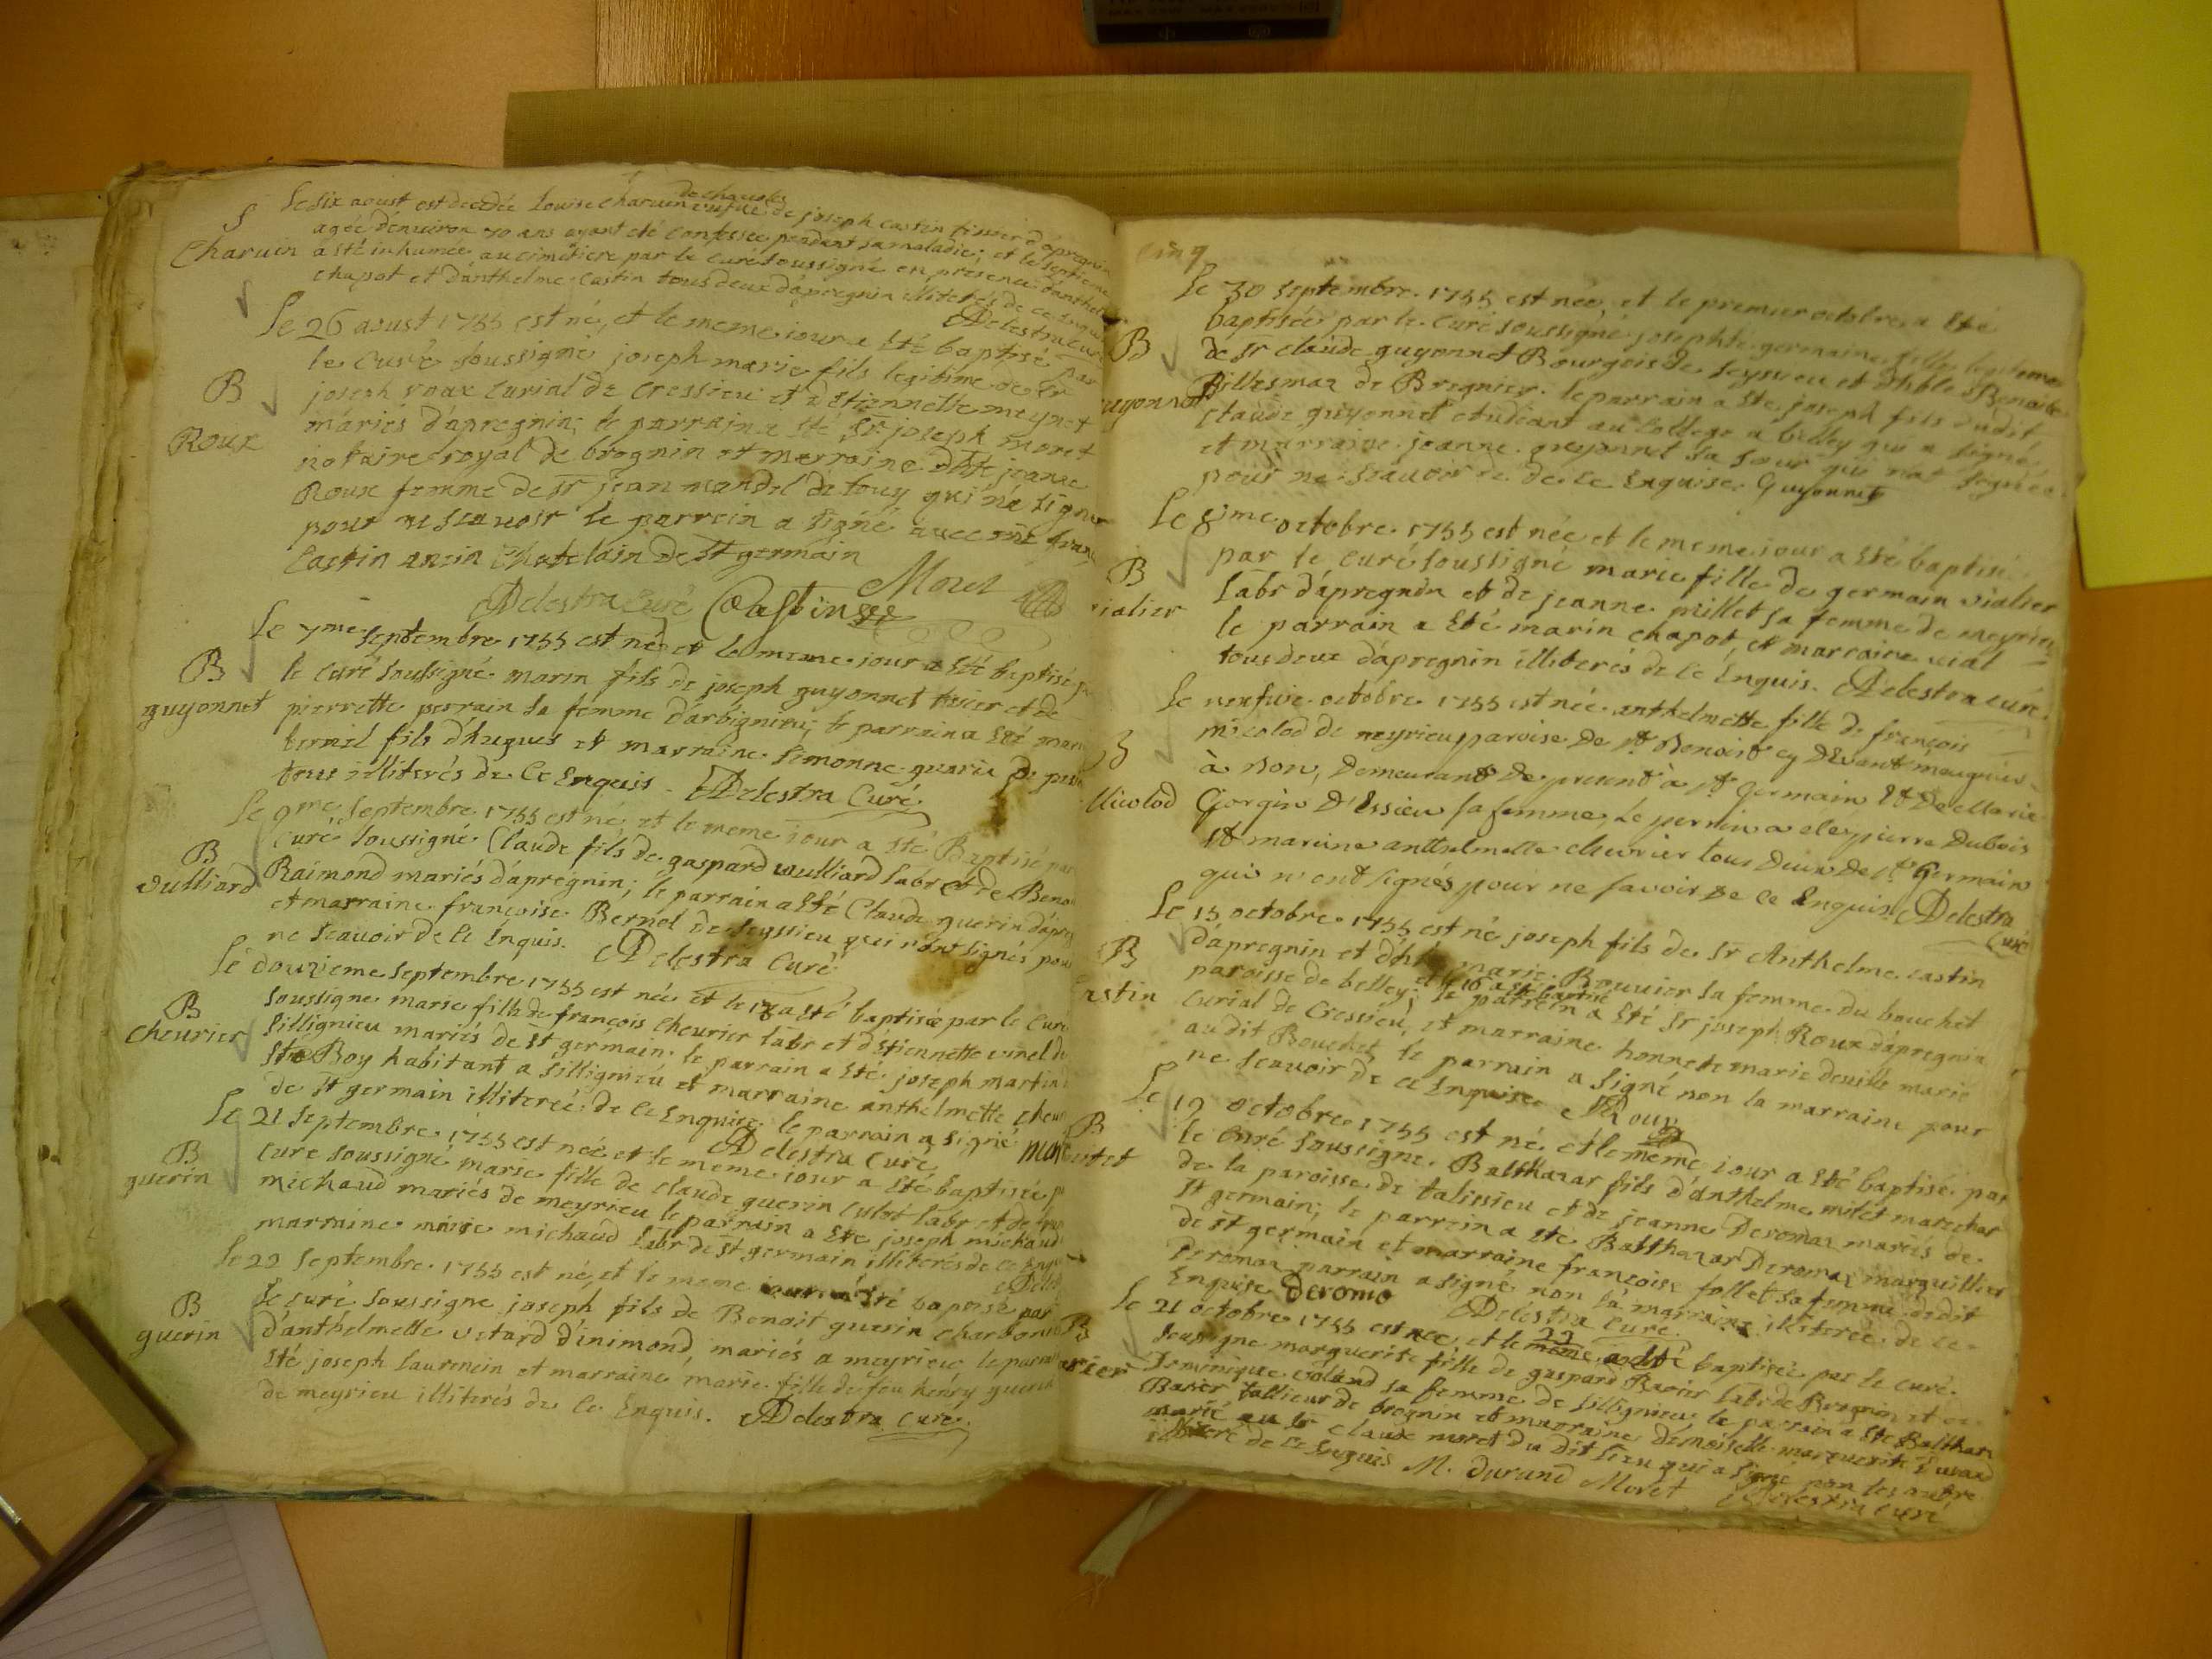 Le six aoust est decedée Louise charvin veufue de joseph castin tissier d'apregnin
de chavoley
agée d'environ 70 ans ayant eté confessée pendant sa maladie; et le septieme
S
Charvin
a sté inhumée au cimetiere par le curé soussigné en présence d'anthelme
chapot et d'anthelme castin tous deux d'apregnin illiterés de ce enquis
ADelestra curé
Le 26 aoust 1755 est né, et le meme iour a sté baptisé par
le curé soussigné joseph marie fils legitime de Sr
B
Roux
joseph roux curial de cressieu et d'Etiennette meynet
mariés d'apregnin; le parrain a sté Sr joseph moret
notaire royal de brognin et marraine jeanne
Roux femme de Sr jean mandel de touy qui n'a signé
pour ne scavoir le parrein a signé avec
Castin Chatelain de St germain
Moret
ADelestra curé Castin
Le 7me septembre 1755 est né et le meme iour a sté baptisé
B
guyonnet
le curé soussigné marin fils de joseph guyonnet et de
pierrette perrain sa femme d'arbignieu; le parrain a sté
fils d'hugues et marraine simonne
tous illiterés de ce enquis - ADelestra Curé
Le 9me septembre 1755 est né et le meme iour a sté Baptisé par
B
vulliard
curé soussigné Claude fils de gaspard wulliard labr et de
Raimond mariés d'apregnin; le parrain a sté Claude guerin
et marraine françoise Bernol de seyssieu qui n'ont signés pour
ne scavoir de ce enquis. ADelestra Curé
Le douzieme septembre 1755 est née et le a sté baptisée par le curé
B
chevrier
soussigné marie fille de françois chevrier labr et d'étiennette
sillignieu mariés de St germain; le parrain a sté joseph martin
Roy habitant a sillignieu et marraine anthelmette
de St germain illiterée de ce enquise le parrain a signé
ADelestra curé
Le 21 septembre 1755 est née et le meme iour a sté baptisée
B
guerin
curé soussigné marie fille de claude guerin labr et de
michaud mariés de meyrieu le parrain a sté joseph michaud
marraine marie michaud labr de St germain illiterés de ce
Le 22 septembre 1755 est né, et le meme iour a sté baptisé par
B
guerin
le curé soussigné joseph fils de Benoit guerin
d'anthelmette vetard d'inimond, mariés a meyrieu le
sté joseph laurencin et marraine marie fille de feu henry guerin
de meyrieu illiterés de ce enquis. ADelestra curé
cinq
Le 30 septembre 1755 est née, et le premier octobre a sté
B
guyonnet
baptisée par le curé soussigné josephte germaine fille legitime
de Sr claude guyonnet Bourgeois de seyssieu et
de Bregnier. le parrain a sté joseph fils dudit
claude guyonnet etudiant au college a belley qui a signé
et marraine jeanne guyonnet sa soeur qui n'at signée
pour ne scavoir de ce enquise Guyonnet
Le 8ime octobre 1755 est née et le meme iour a sté baptisé
B
vialier
par le curé soussigné marie fille de germain vialier
labr d'apregnin et de jeanne millet sa femme de meyrieu
le parrain a sté marin chapot, et marraine
tous deux d'apregnin illiterés de ce enquis. ADelestra curé
Le octobre 1755 est née anthelmette fille de françois
nicolod de meyrieu paroise de St Benoit cy devant
à Don, demeurant de present à St Germain et de Marie
Nicolod
Gjorgin d'essieu sa femme, le perrin a eté pierre Dubois
et marine anthelmette chevrier tous deux de St Germain
qui n'ont signés pour ne savoir de ce Enquis. ADelestra
curé
Le 15 octobre 1755 est né joseph fils de Sr Anthelme castin
B
castin
d'apregnin et marie Bouvier sa femme du bouchet
et le 16 a sté baptisé
paroisse de belley; le parrein a sté Sr joseph Roux d'apregnin
curial de cressieu, et marraine honnete marie deville marie
audit Bouchet le parrain a signé non la marraine pour
ne scavoir de ce enquise JRoux
Le 19 octobre 1755 est né et le meme iour a sté baptisé par
B
le curé soussigné Balthazar fils d'anthelme milet marechar
de la paroisse de talissieu et de jeanne Deromaz mariés de
St germain; le parrein a sté Balthazar Deromaz marguillier
de St germain et marraine françoise follet sa femme dedit
Deromaz parrain a signé non la marraine illiterée de ce
enquise Deromo ADelestra curé.
Le 21 octobre 1755 est née, et le 22 a sté baptisée par le curé
B
soussigné marguerite fille de gaspard Bavier labr de Brognin et
Dominique voland sa femme de sillignieu le parrain a sté Balthazar
tallieur de brognin et marraine demoiselle marguerite Durand
mariée au Sr claude moret du dit lieu qui a signé non les autre
illiteré de ce enquis M. Durand Moret ADelestra curé